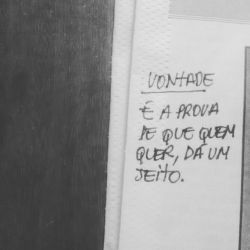 VONTADE
É A PROVA
DE QUE QUEM
QUER, DÁ UM
JEITO.